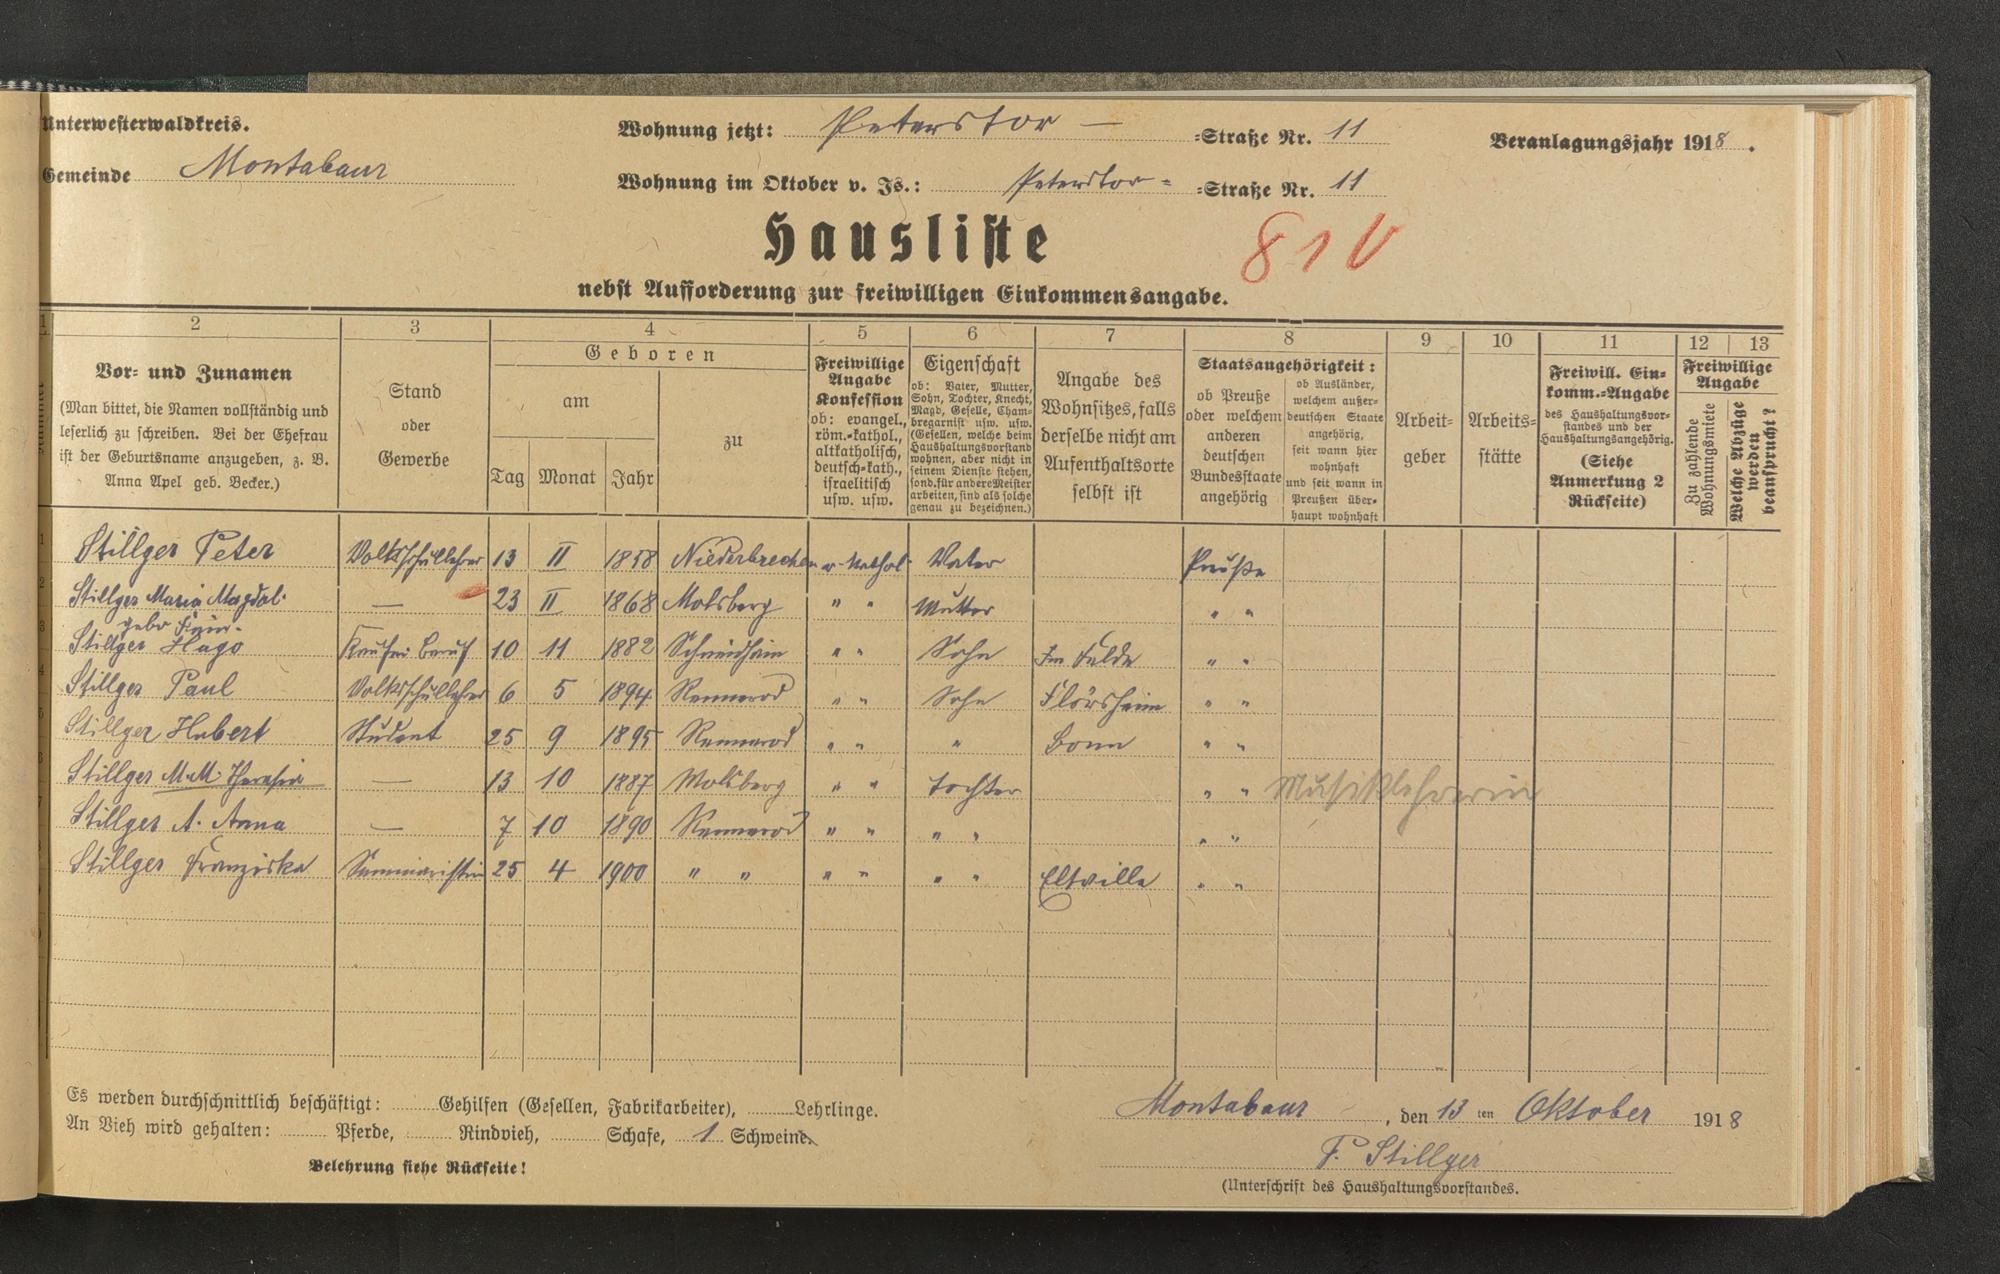 Unterwesterwaldkreis.
Wohnung jetzt: Peterstor — =Straße Nr. 11
Veranlagungsjahr 1918.
Gemeinde Montabaur
Wohnung im Oktober v. Js.: Peterstor= =Straße Nr. 11
Hausliste
81 V
nebst Aufforderung zur freiwilligen Einkommensangabe.
1 2 3 4 5 6 7 8 9 10 11 12 13
Vor= und Zunamen
(Man bittet, die Namen vollständig und
leserlich zu schreiben. Bei der Ehefrau
ist der Geburtsname anzugeben, z. B.
Anna Apel geb. Becker.)
Stand
oder
Gewerbe
Geboren
am
Tag Monat Jahr
zu
Freiwillige
Angabe
Konfession
ob: evangel.,
röm.=kathol.,
altkatholisch,
deutsch=kath.,
israelitisch
usw. usw.
Eigenschaft
ob: Vater, Mutter,
Sohn, Tochter, Knecht,
Magd, Geselle, Cham=
bregarnist usw. usw.
(Gesellen, welche beim
Haushaltungsvorstand
wohnen, aber nicht in
seinem Dienste stehen,
sond. für andere Meister
arbeiten, sind als solche
genau zu bezeichnen.)
Angabe des
Wohnsitzes, falls
derselbe nicht am
Aufenthaltsorte
selbst ist
Staatsangehörigkeit:
ob Preuße
oder welchem
anderen
deutschen
Bundesstaate
angehörig
ob Ausländer,
welchem außer=
deutschen Staate
angehörig,
seit wann hier
wohnhaft
und seit wann in
Preußen über=
haupt wohnhaft
Arbeit=
geber
Arbeits=
stätte
Freiwill. Ein=
komm.=Angabe
des Haushaltungsvor=
standes und der
Haushaltungsangehörig.
(Siehe
Anmerkung 2
Rückseite)
Freiwillige
Angabe
Zu zahlende
Wohnungsmiete
Welche Abzüge
werden
beansprucht?
1 Stillger Peter Volksschullehrer 13 II 1858 Niederbrechen r. kathol. Vater Preuße
2 Stillger Maria Magdal. — 23 II 1868 Molsberg " " Mutter " "
3 Stillger Hugo 10 11 1882 " " Sohn Im Felde " "
4 Stillger Paul Volksschullehrer 6 5 1894 Rennerod " " Sohn Flörsheim " "
5 Stillger Hubert Student 25 9 1895 Rennerod " " " Bonn " "
6 Stillger M.M. Theresia — 13 10 1887 Molsberg " " Tochter " " Musiklehrerin
7 Stillger A. Anna — 7 10 1890 Rennerod " " " " " "
8 Stillger Franziska Seminaristin 25 4 1900 " " " " " " Eltville " "
Es werden durchschnittlich beschäftigt: Gehilfen (Gesellen, Fabrikarbeiter), Lehrlinge.
An Vieh wird gehalten: Pferde, Rindvieh, Schafe, 1 Schweine.
Belehrung siehe Rückseite!
Montabaur, den 13 ten Oktober 1918
P. Stillger
(Unterschrift des Haushaltungsvorstandes.